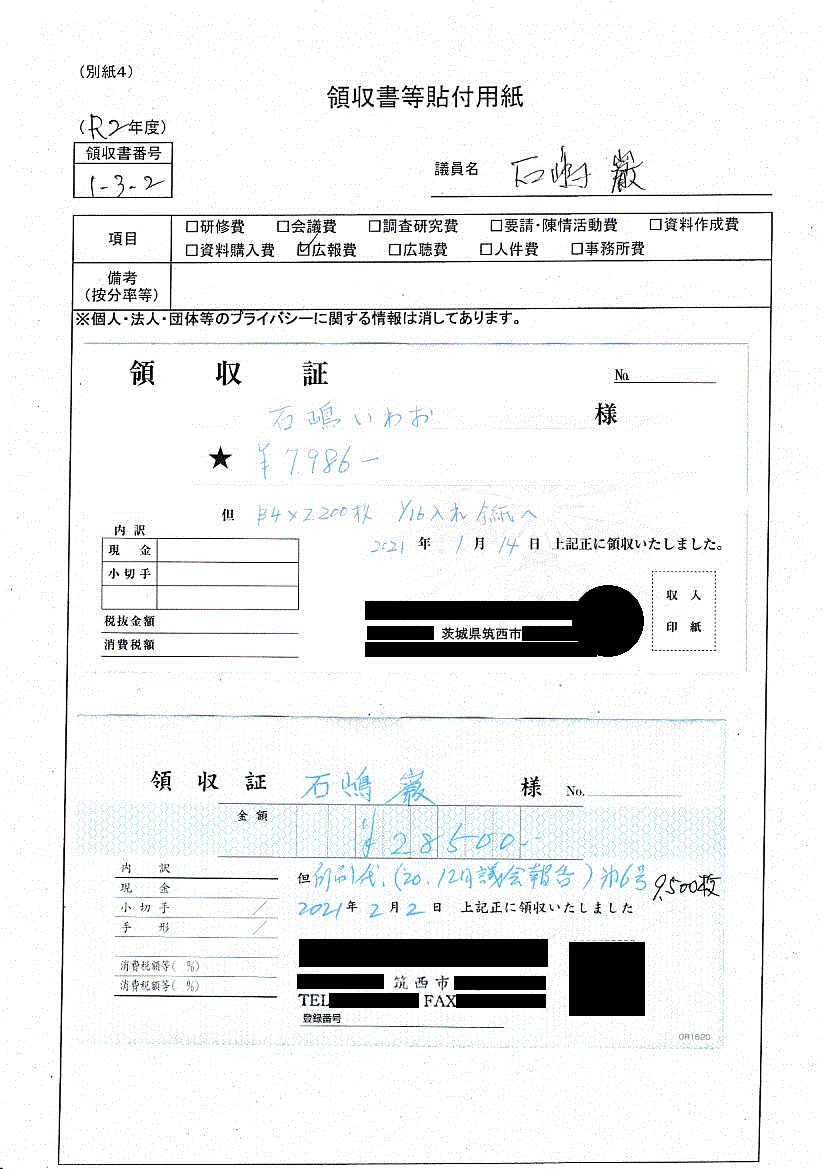 (別紙4)
領収書等貼付用紙
(R2年度)
領収書番号
1-3-2
議員名 石嶋 巖
項目
□研修費 □会議費 □調査研究費 □要請・陳情活動費 □資料作成費
□資料購入費 ☑広報費 □広聴費 □人件費 □事務所費
備考
(按分率等)
※個人・法人・団体等のプライバシーに関する情報は消してあります。
領収証 No.
石嶋いわお 様
★ ¥7986-
但 B4×2,200枚 1/16入れ 全紙へ
2021年1月14日 上記正に領収いたしました。
内訳
現金
小切手
税抜金額
消費税額
収入
印紙
茨城県筑西市
領収証 石嶋 巖 様 No.
金額
¥28500-
但 印刷代、(20.12月議会報告)第6号 9,500枚
2021年2月2日 上記正に領収いたしました
内訳
現金
小切手
手形
消費税額等( %)
消費税額等( %)
筑西市
TEL FAX
登録番号
GR1620